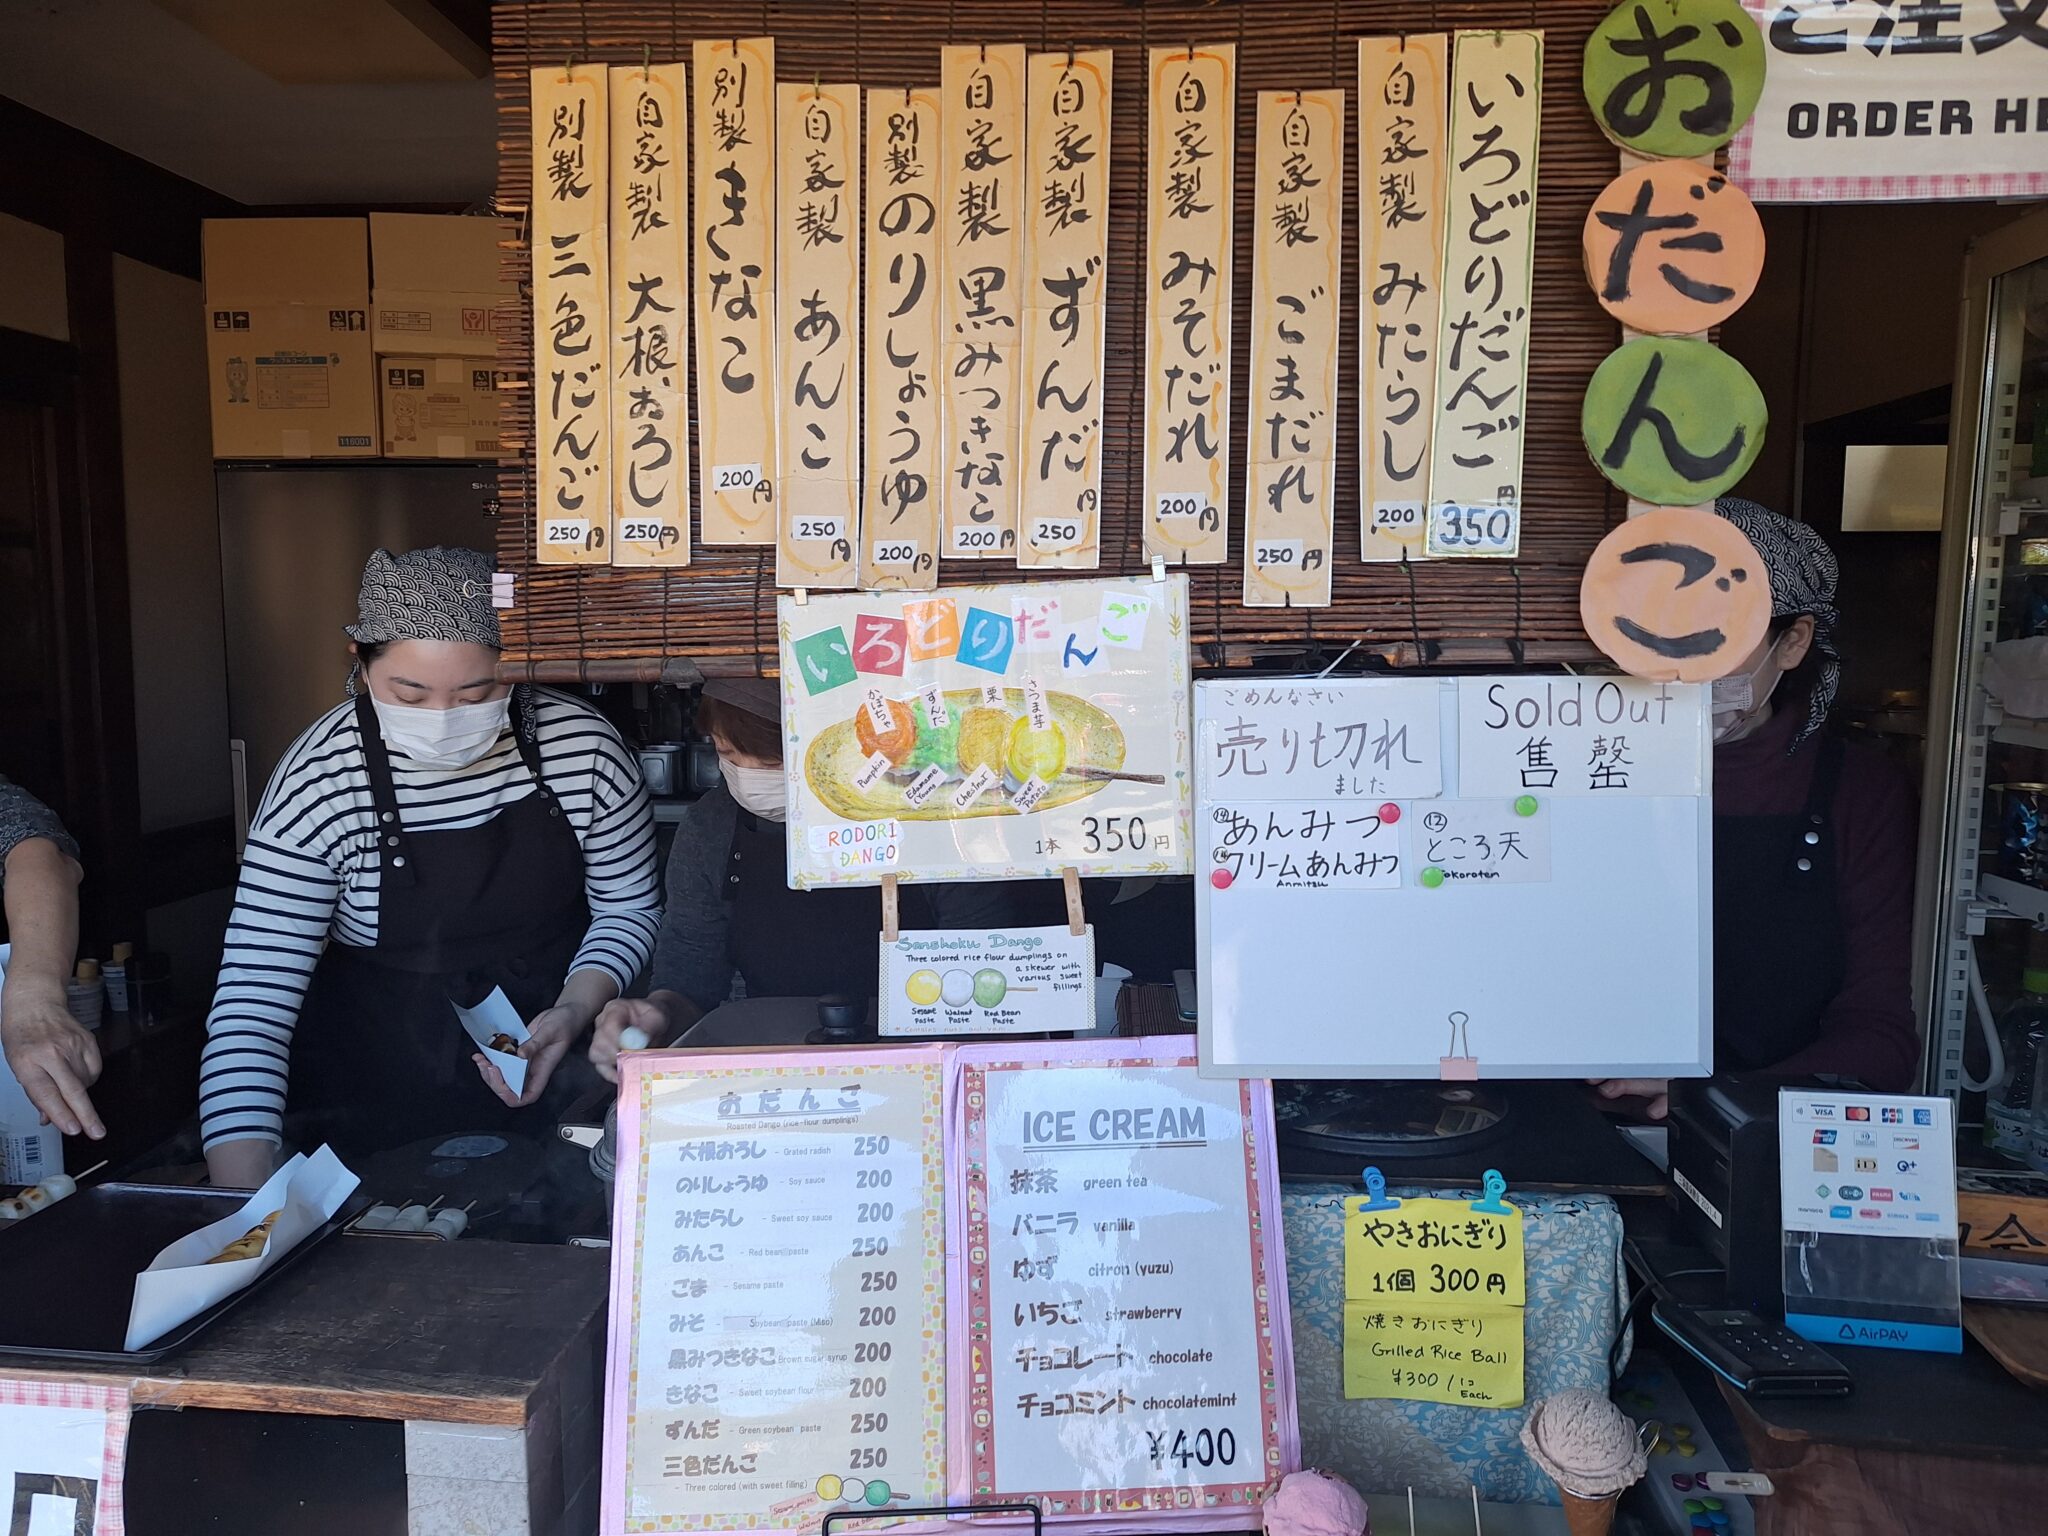 いろどりだんご
350円
自家製 みたらし
200
自家製 ごまだれ
250円
自家製 みそだれ
200円
自家製 ずんだ
250円
自家製 黒みつきなこ
200円
別製 のりしょうゆ
200円
自家製 あんこ
250円
別製 きなこ
200円
自家製 大根おろし
250円
別製 三色だんご
250円
おだんご
ORDER
いろどりだんご
かぼちゃ
ずんだ
栗
さつま芋
Pumpkin
Edamame
(Young
Chestnut
Sweet
Potato
RODORI
DANGO
1本 350円
Sanshoku Dango
Three colored rice flour dumplings on
a skewer with
various sweet
fillings.
Sesame Paste
Walnut Paste
Red Bean Paste
* Contains nuts and yam
ごめんなさい
売り切れ
ました
Sold Out
售罄
⑬あんみつ
クリームあんみつ
Anmitsu
⑫
ところ天
okoroten
おだんご
Roasted Dango (rice-flour dumplings)
大根おろし - Grated radish 250
のりしょうゆ - Soy sauce 200
みたらし - Sweet soy sauce 200
あんこ - Red bean paste 250
ごま - Sesame paste 250
みそ - Soybean paste (Miso) 200
黒みつきなこ Brown sugar syrup 200
きなこ - Sweet soybean flour 200
ずんだ - Green soybean paste 250
三色だんご 250
- Three colored (with sweet filling)
ICE CREAM
抹茶 green tea
バニラ vanilla
ゆず citron (yuzu)
いちご strawberry
チョコレート chocolate
チョコミント chocolatemint
¥400
やきおにぎり
1個 300円
焼きおにぎり
Grilled Rice Ball
¥300 / 1コ
Each
VISA
JCB
DISCOVER
iD
AirPAY
SHAR
116001